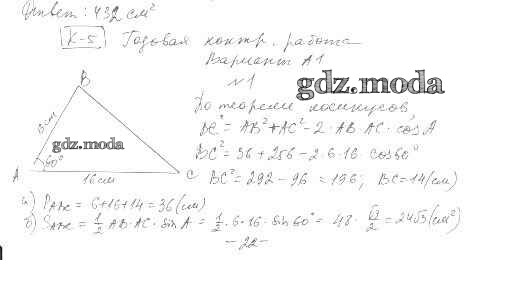 Ответ: 432 см²
К-5 Годовая контр. работа
Вариант А1
№1
gdz.moda
По теореме косинусов,
BC² = AB² + AC² - 2 · AB · AC · cos A
BC² = 36 + 256 - 2 · 6 · 16 · cos 60°
BC² = 292 - 96 = 196; BC = 14 (см)
B
6 см
gdz.moda
60°
A
16 см
C
а) P_ABC = 6 + 16 + 14 = 36 (см)
б) S_ABC = 1/2 AB · AC · sin A = 1/2 · 6 · 16 · sin 60° = 48 · √3/2 = 24√3 (см²)
- 22 -